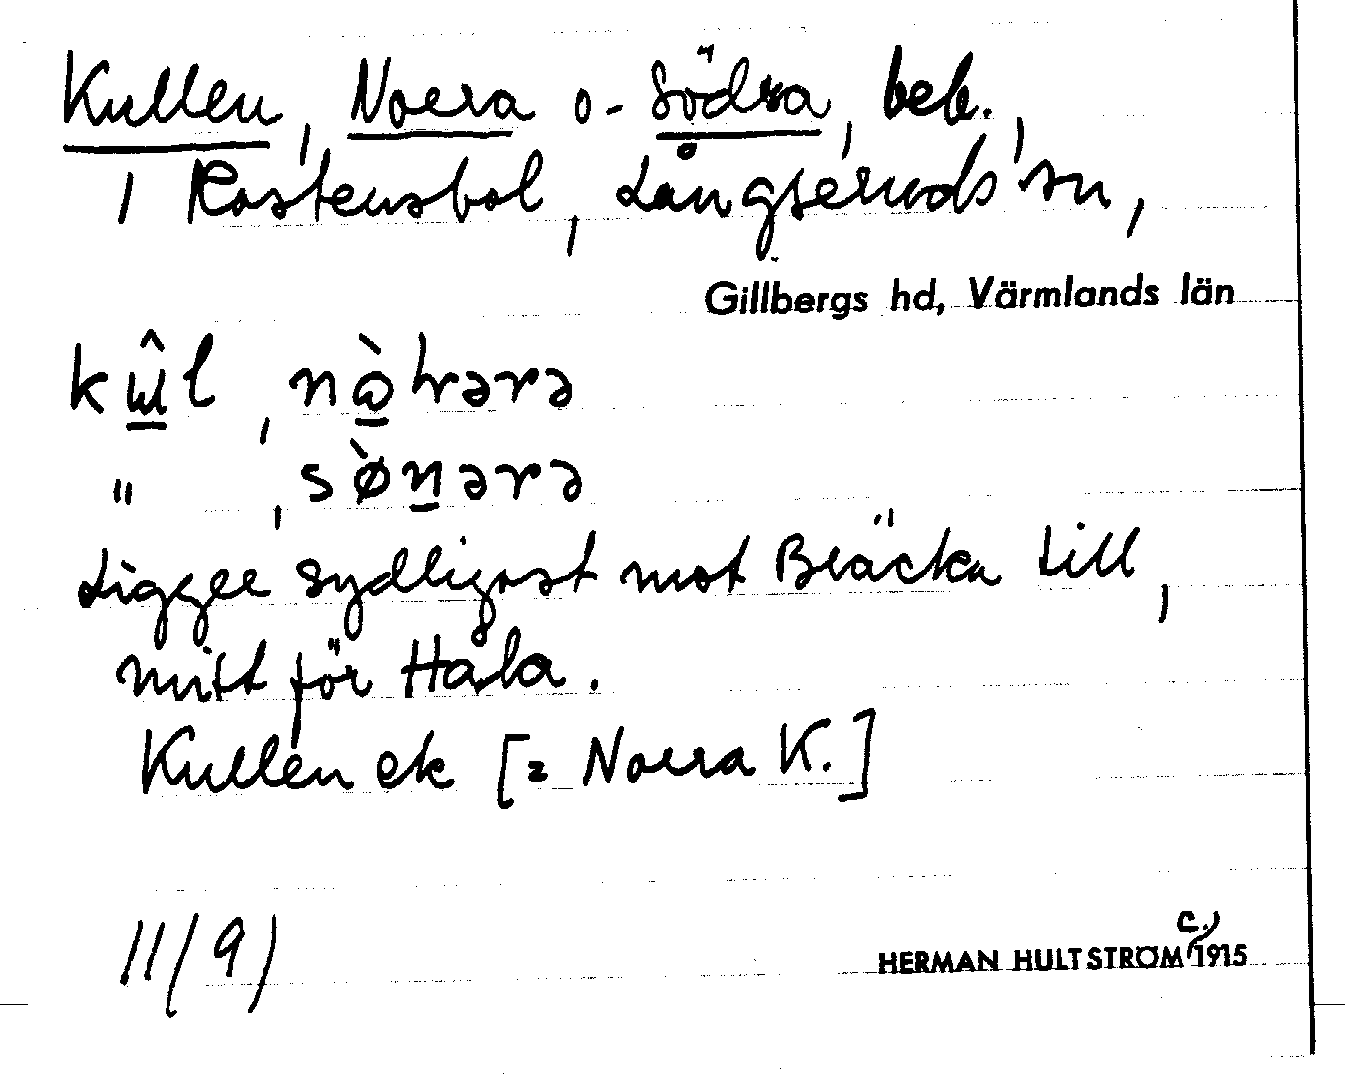 Kullen, Norra o- Södra, beb.,
i Rostensbol, Långseruds sn,
Gillbergs hd, Värmlands län
kɯ̂l, nɷ̀hrərə
" , sø̀nərə
Ligger sydligast mot Bräcka till,
mitt för Håla.
Kullen ek [= Norra K.]
11(9)
HERMAN HULTSTRÖM c. 1915